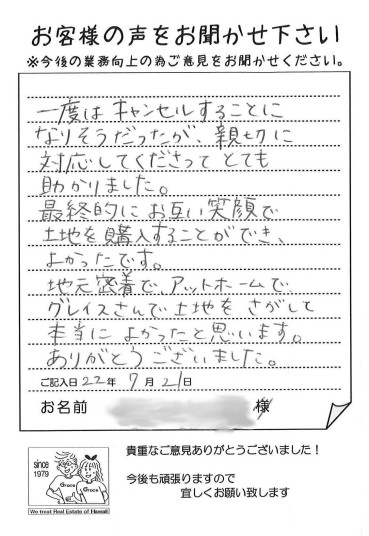 お客様の声をお聞かせ下さい
※今後の業務向上の為ご意見をお聞かせください。
一度は キャンセルすることに
なりそうだったが、親切に
対応してくださって とても
助かりました。
最終的に お互い笑顔で
土地を購入することができ、
よかったです。
地元密着で、アットホームで
グレイスさんで土地を さがして
本当に よかったと思います。
ありがとうございました。
ご記入日22年 7月21日
お名前 様
貴重なご意見ありがとうございました！
今後も頑張りますので
宜しくお願い致します
since
1979
Grace
Grace
We treat Real Estate of Hawaii